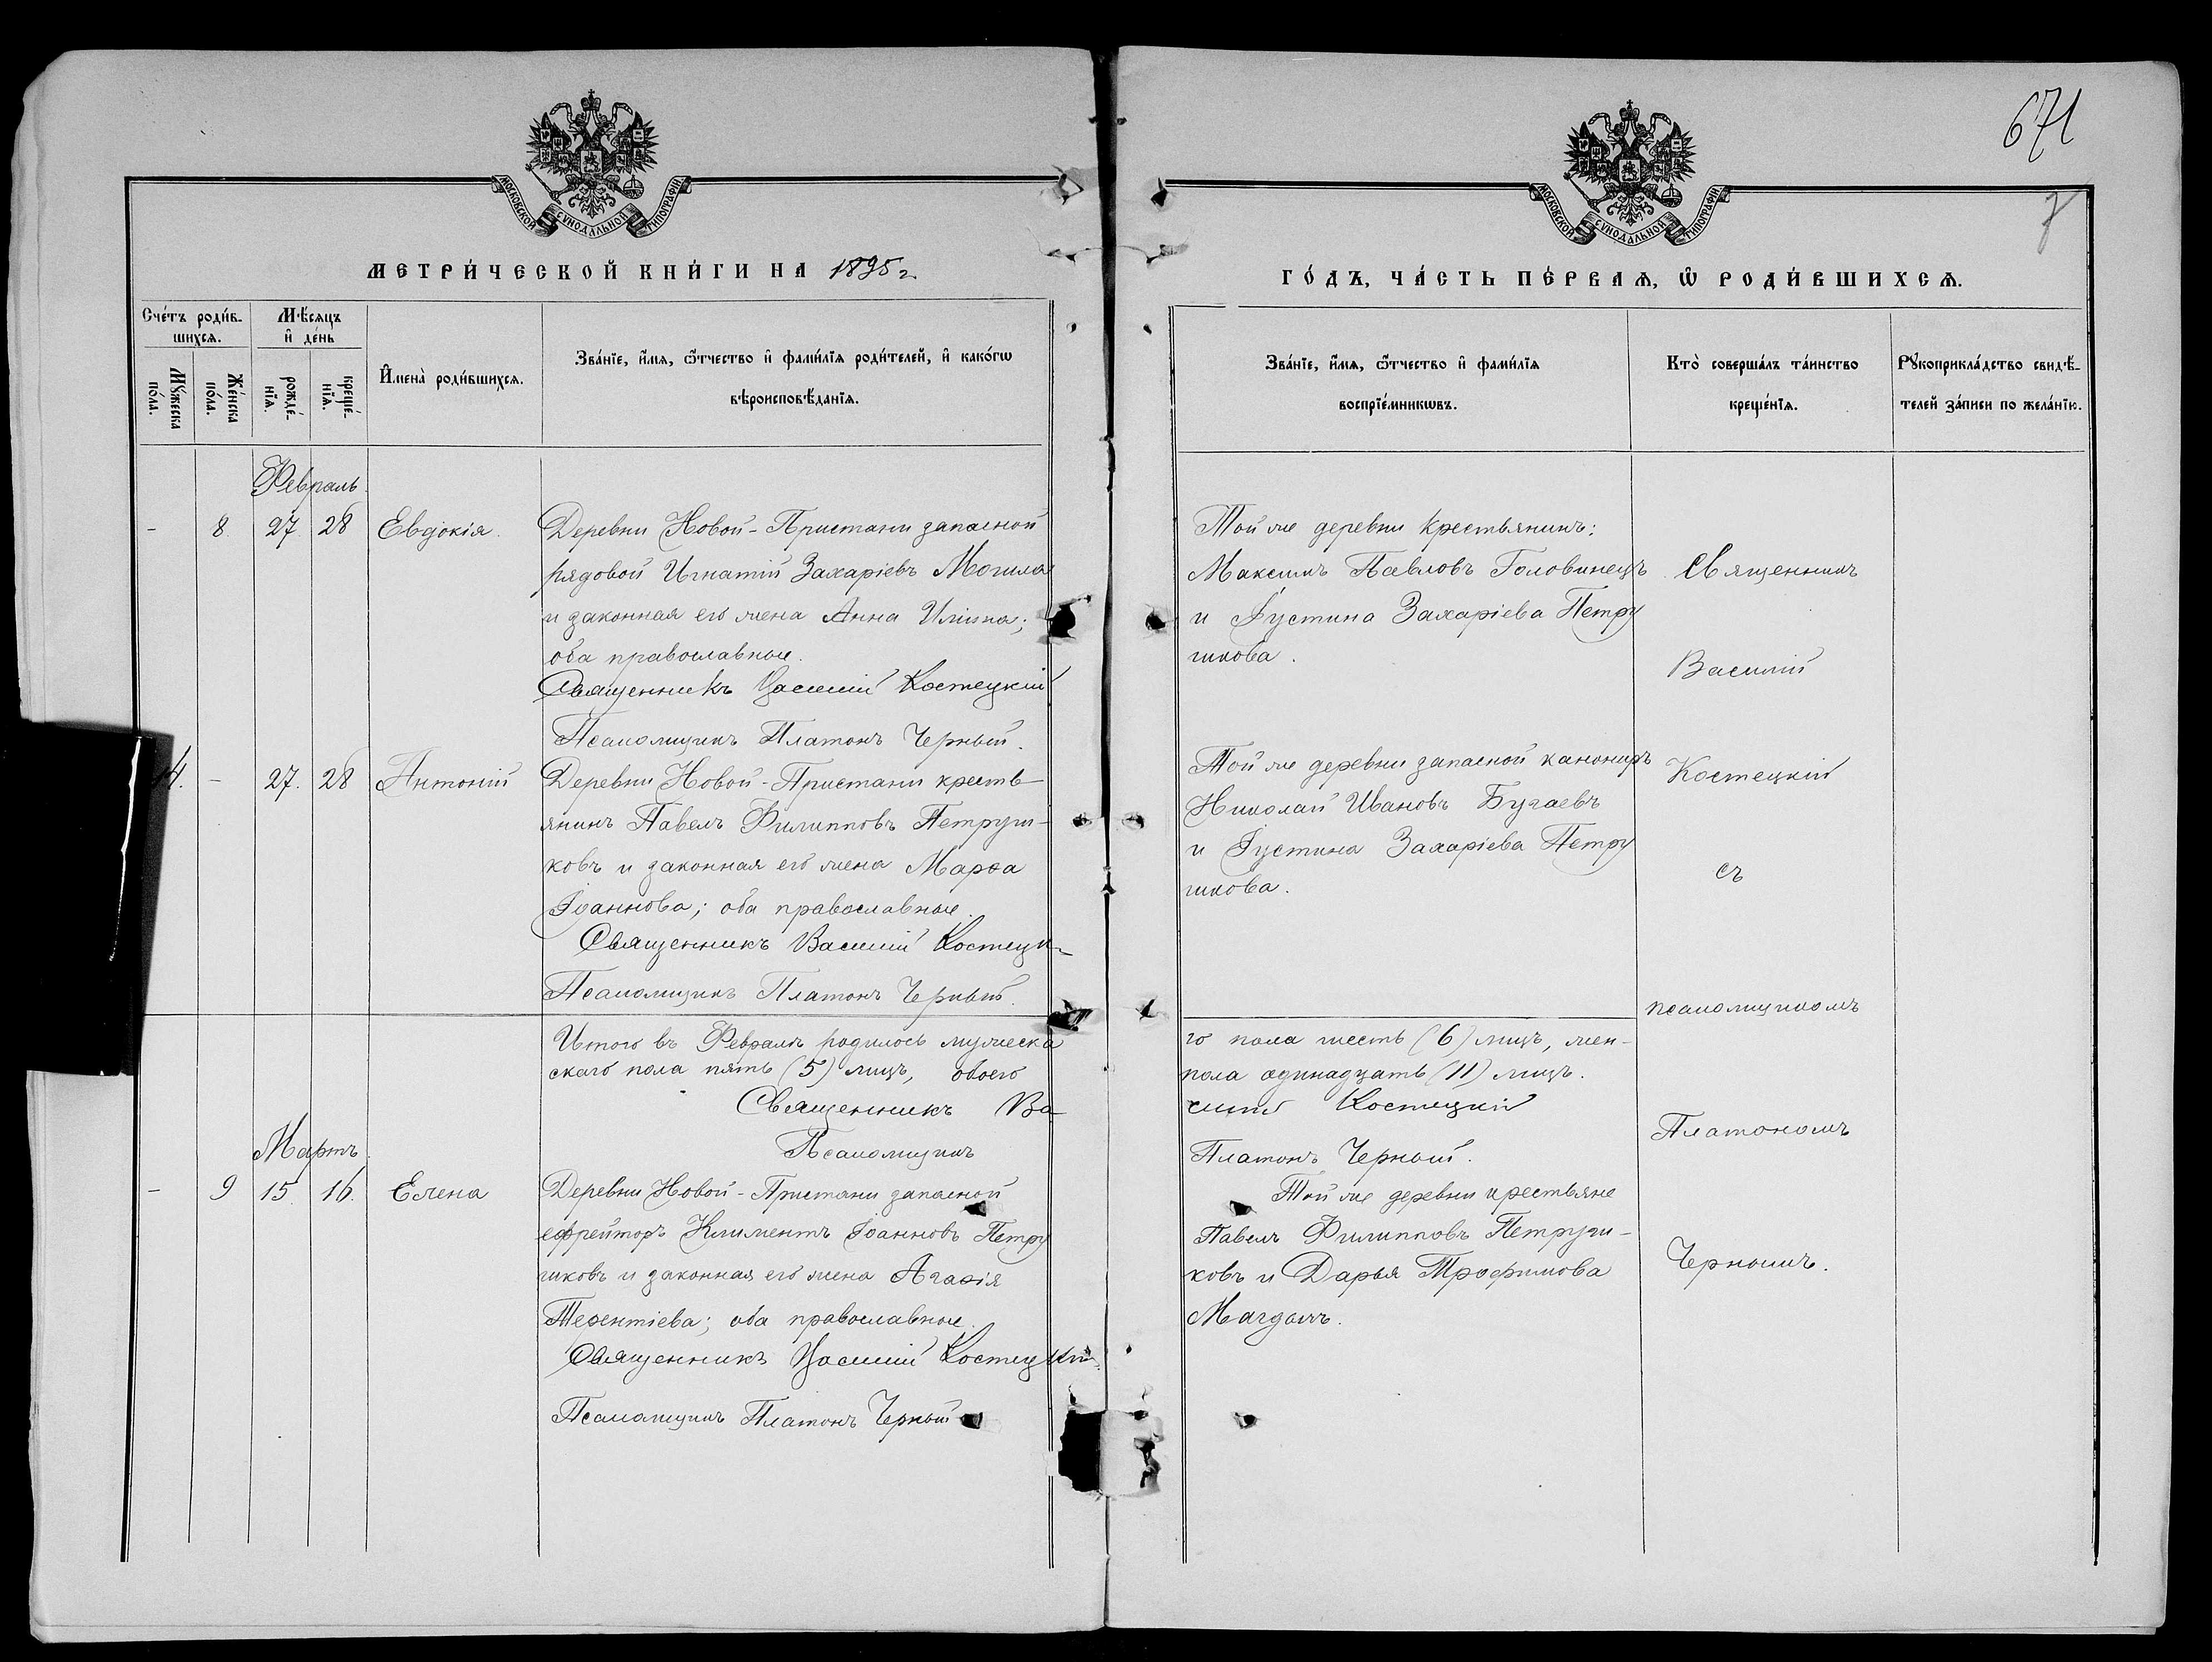 671
7
МОСКОВСКОЙ СѴНОДАЛЬНОЙ ТИПОГРАФІИ
МОСКОВСКОЙ СѴНОДАЛЬНОЙ ТИПОГРАФІИ
МЕТРИ́ЧЕСКОЙ КНИ́ГИ НА 1895 г.
ГО́ДЪ, ЧА́СТЬ ПЕ́РВАЯ, Ѡ РОДИ́ВШИХСЯ.
Сче́тъ роди́в-
шихся.
Мꙋ́жеска
по́ла.
Же́нска
по́ла.
Мѣ́сяцъ
и҆ де́нь
рожде́-
нїя.
креще́-
нїя.
И҆мена̀ роди́вшихся.
Зва́нїе, и҆́мя, ѻ҆́тчество и҆ фами́лїя роди́телей, и҆ како́гѡ
вѣроисповѣ́данїя.
Зва́нїе, и҆́мя, ѻ҆́тчество и҆ фами́лїя
воспрїе́мникѡвъ.
Кто̀ соверша́лъ та́инство
креще́нїя.
Рꙋкоприкла́дство свидѣ́-
телей за́писи по жела́нїю.
Февраль.
- 8 27 28 Евдокія.
Деревни Новой-Пристани запасной
рядовой Игнатій Захаріевъ Могила
и законная его жена Анна Иліина;
оба православные.
Священникъ Василій Костецкій
Псаломщикъ Платонъ Черный.
Той же деревни крестьянинъ:
Максимъ Павловъ Головинецъ
и Іустина Захаріева Петру
шкова.
14. - 27. 28 Антоній
Деревни Новой-Пристани кресть-
янинъ Павелъ Филипповъ Петруш-
ковъ и законная его жена Марѳа
Іоаннова; оба православные.
Священникъ Василій Костецк
Псаломщикъ Платонъ Черный.
Той же деревни запасной канониръ
Николай Ивановъ Бугаевъ
и Іустина Захаріева Петру
шкова.
Итого въ Февралѣ родилось мужеска
го пола шесть (6) лицъ, жен-
скаго пола пять (5) лицъ, обоего
пола одинадцать (11) лицъ.
Священникъ Ва-
силій Костецкій
Псаломщикъ
Платонъ Черный.
Мартъ.
- 9 15. 16. Елена
Деревни Новой-Пристани запасной
ефрейторъ Климентъ Іоанновъ Петру
шковъ и законная его жена Агаѳія
Терентіева; оба православные.
Священникъ Василій Костецкій
Псаломщикъ Платонъ Черный
Той же деревни крестьяне
Павелъ Филипповъ Петруш-
ковъ и Дарья Трофимова
Магдалъ.
Священникъ
Василій
Костецкій
съ
псаломщикомъ
Платономъ
Чернымъ.